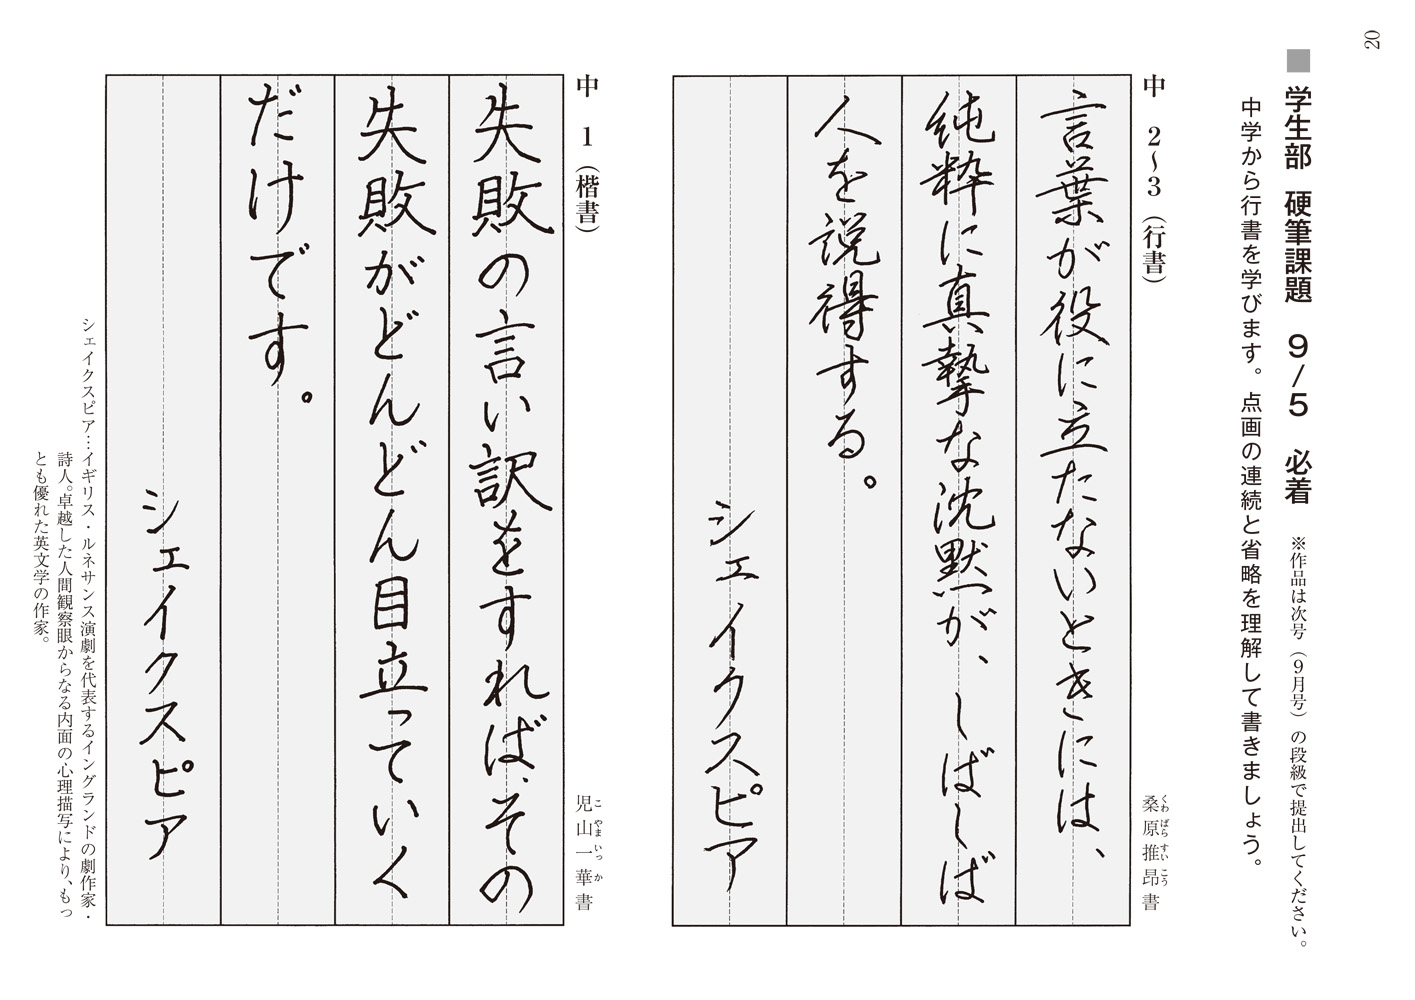 20
■学生部 硬筆課題 9/5 必着 ※作品は次号(9月号)の段級で提出してください。
中学から行書を学びます。点画の連続と省略を理解して書きましょう。
中 2~3(行書)
桑原推昂書
くわばらすいこう
言葉が役に立たないときには、
純粋に真摯な沈黙が、しばしば
人を説得する。
シェイクスピア
中 1(楷書)
児山一華書
こやまいっか
失敗の言い訳をすれば、その
失敗がどんどん目立っていく
だけです。
シェイクスピア
シェイクスピア…イギリス・ルネサンス演劇を代表するイングランドの劇作家・
詩人。卓越した人間観察眼からなる内面の心理描写により、もっ
とも優れた英文学の作家。